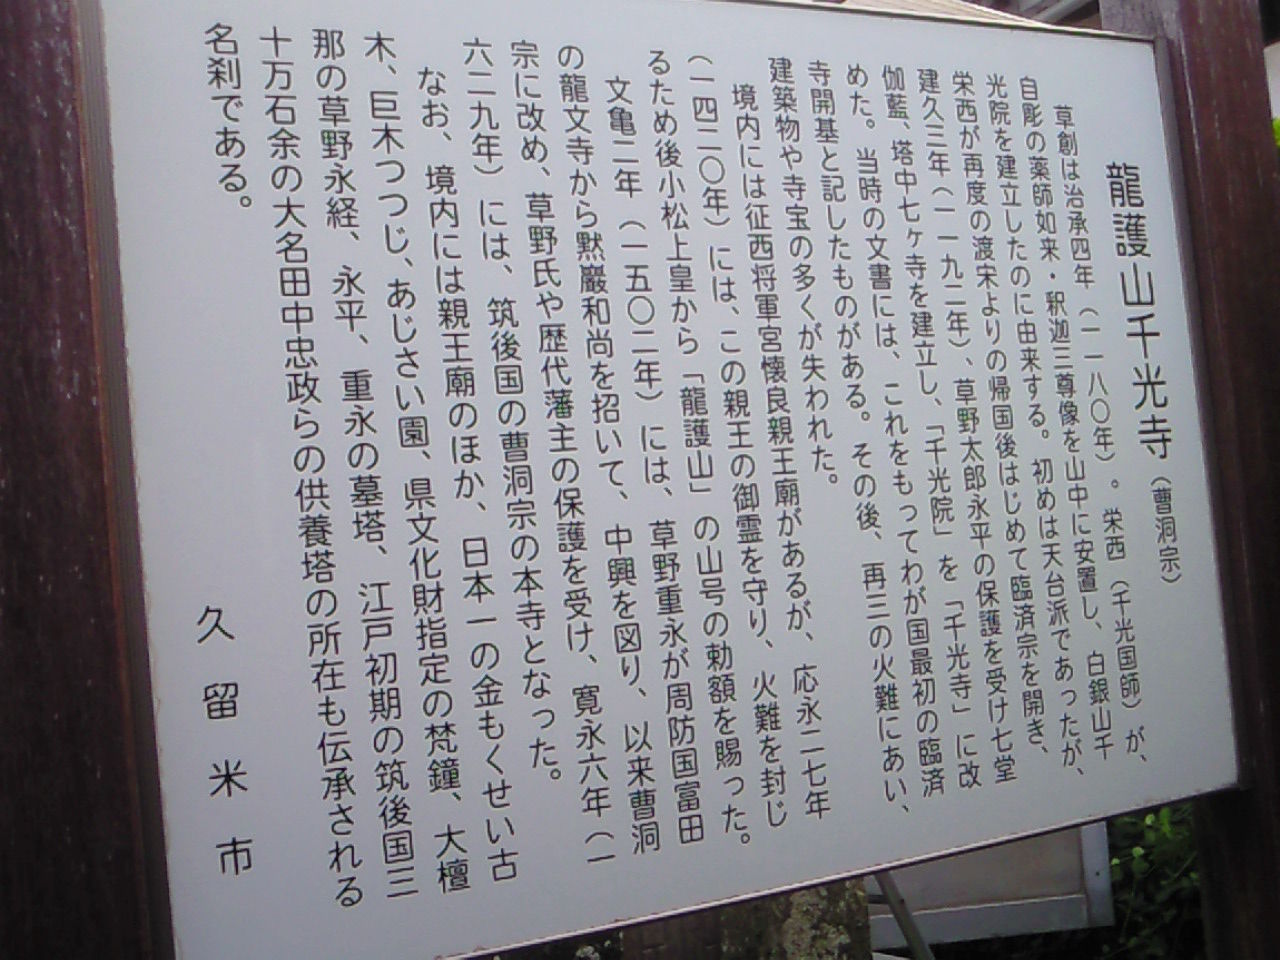 龍護山千光寺（曹洞宗）
草創は治承四年（一一八〇年）。栄西（千光国師）が、
自彫の薬師如来・釈迦三尊像を山中に安置し、白銀山千
光院を建立したのに由来する。初めは天台派であったが、
栄西が再度の渡宋よりの帰国後はじめて臨済宗を開き、
建久三年（一一九二年）、草野太郎永平の保護を受け七堂
伽藍、塔中七ヶ寺を建立し、「千光院」を「千光寺」に改
めた。当時の文書には、これをもってわが国最初の臨済
寺開基と記したものがある。その後、再三の火難にあい、
建築物や寺宝の多くが失われた。
境内には征西将軍宮懐良親王廟があるが、応永二七年
（一四二〇年）には、この親王の御霊を守り、火難を封じ
るため後小松上皇から「龍護山」の山号の勅額を賜った。
文亀二年（一五〇二年）には、草野重永が周防国富田
の龍文寺から黙巖和尚を招いて、中興を図り、以来曹洞
宗に改め、草野氏や歴代藩主の保護を受け、寛永六年（一
六二九年）には、筑後国の曹洞宗の本寺となった。
なお、境内には親王廟のほか、日本一の金もくせい古
木、巨木つつじ、あじさい園、県文化財指定の梵鐘、大檀
那の草野永経、永平、重永の墓塔、江戸初期の筑後国三
十万石余の大名田中忠政らの供養塔の所在も伝承される
名刹である。
久留米市